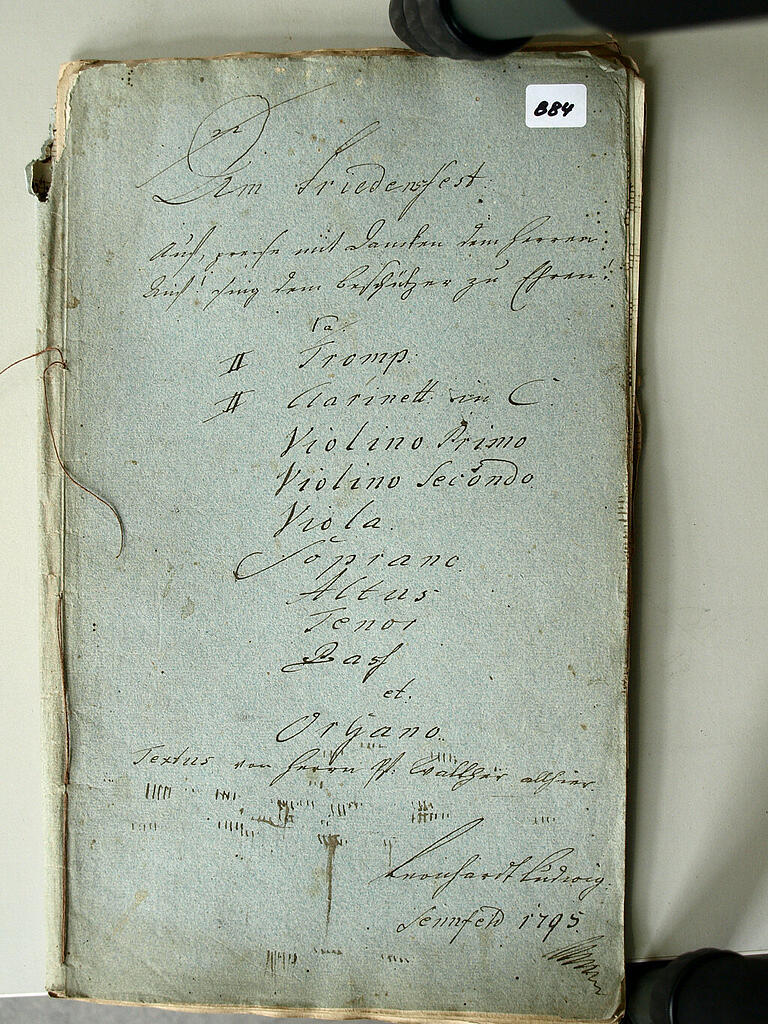 884
Am Friedensfest
Auf, preise mit Dancken dem Herren
Auf! sing dem beschützer zu Ehren!
Va
II Tromp:
II Clarinett in C
Violino Primo
Violino Secondo
Viola
Soprano
Altus
Tenor
Bass
et.
Organo.
Textus von Herrn Pf: Walther allhier.
Leonhardt Ludwig.
Sennfeld 1795